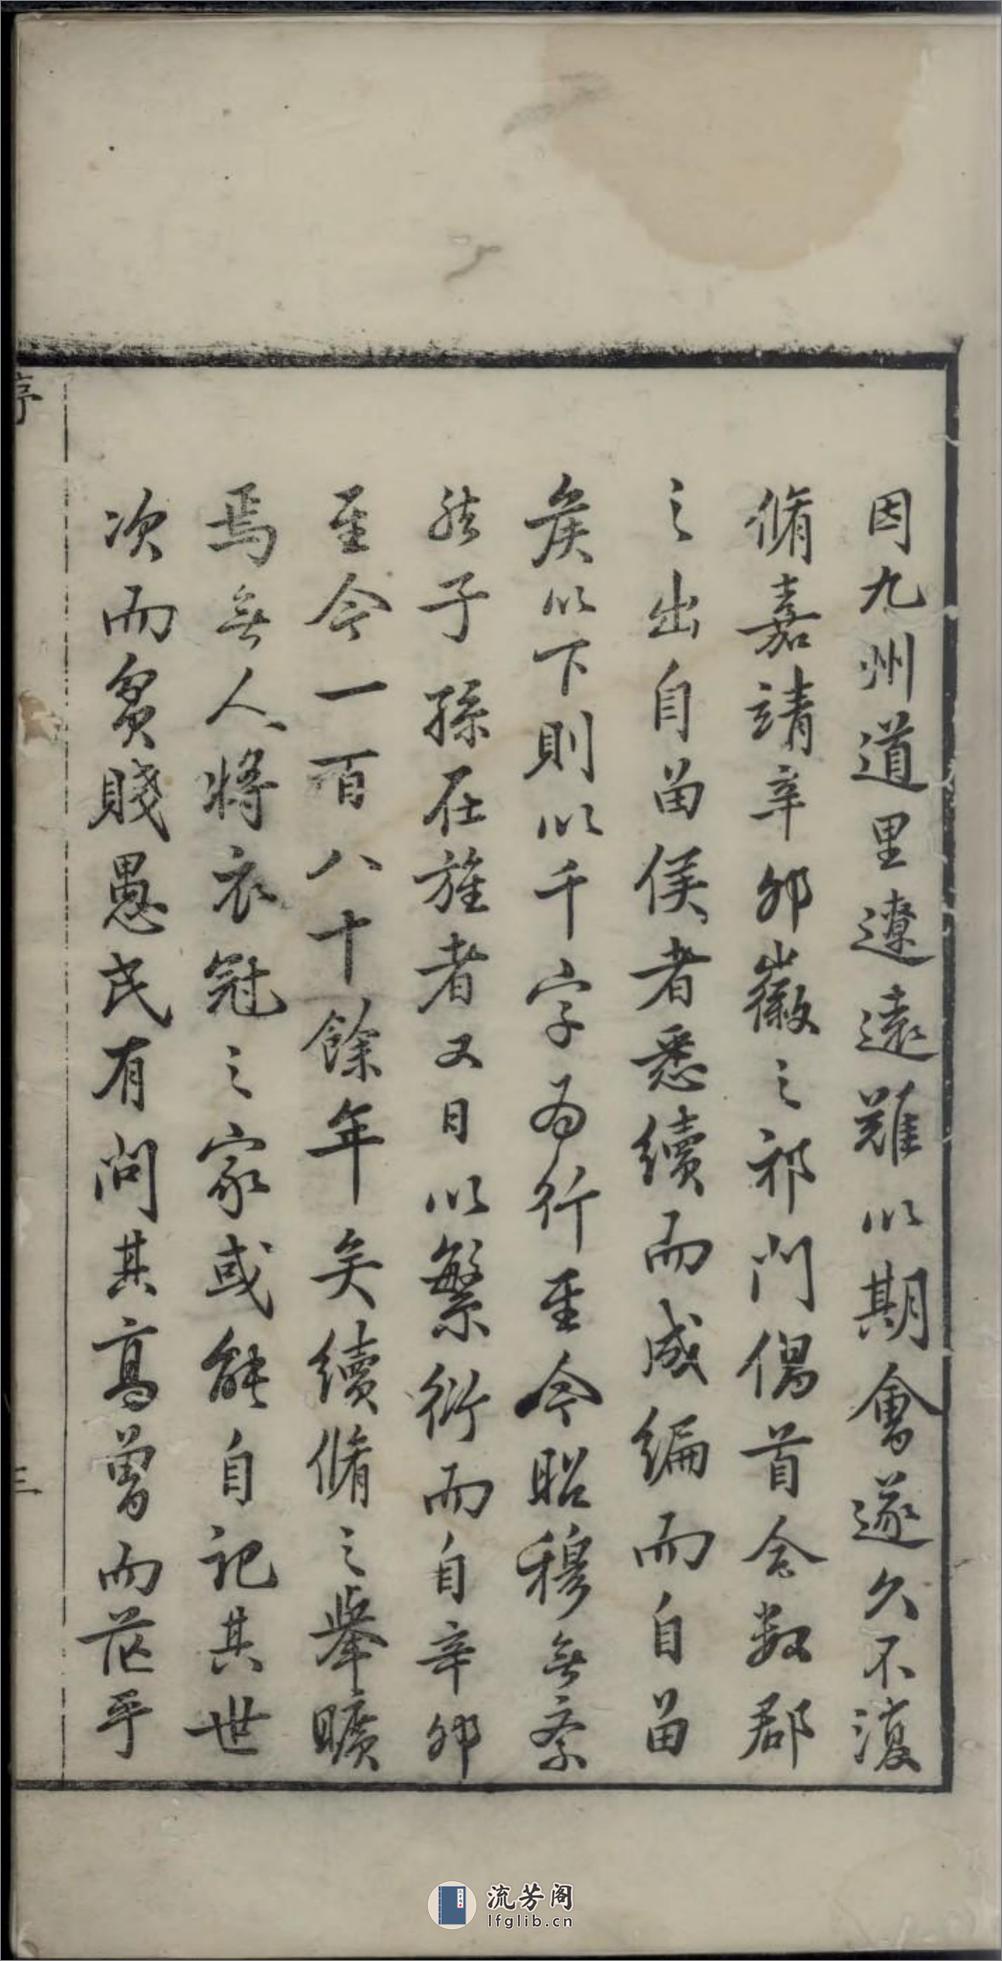 因九州道里遼遠難以期會遂久不復
脩嘉靖辛卯徽之祁門倡首合數郡
之出自苗侯者悉續而成編而自苗
矦以下則以千字為行至今昭穆無紊
然子孫在旌者又日以繁衍而自辛卯
至今一百八十餘年矣續脩之舉曠
焉無人將衣冠之家或能自記其世
次而貧賤愚民有問其高曾而茫乎
序
三
流芳阁
lfglib.cn